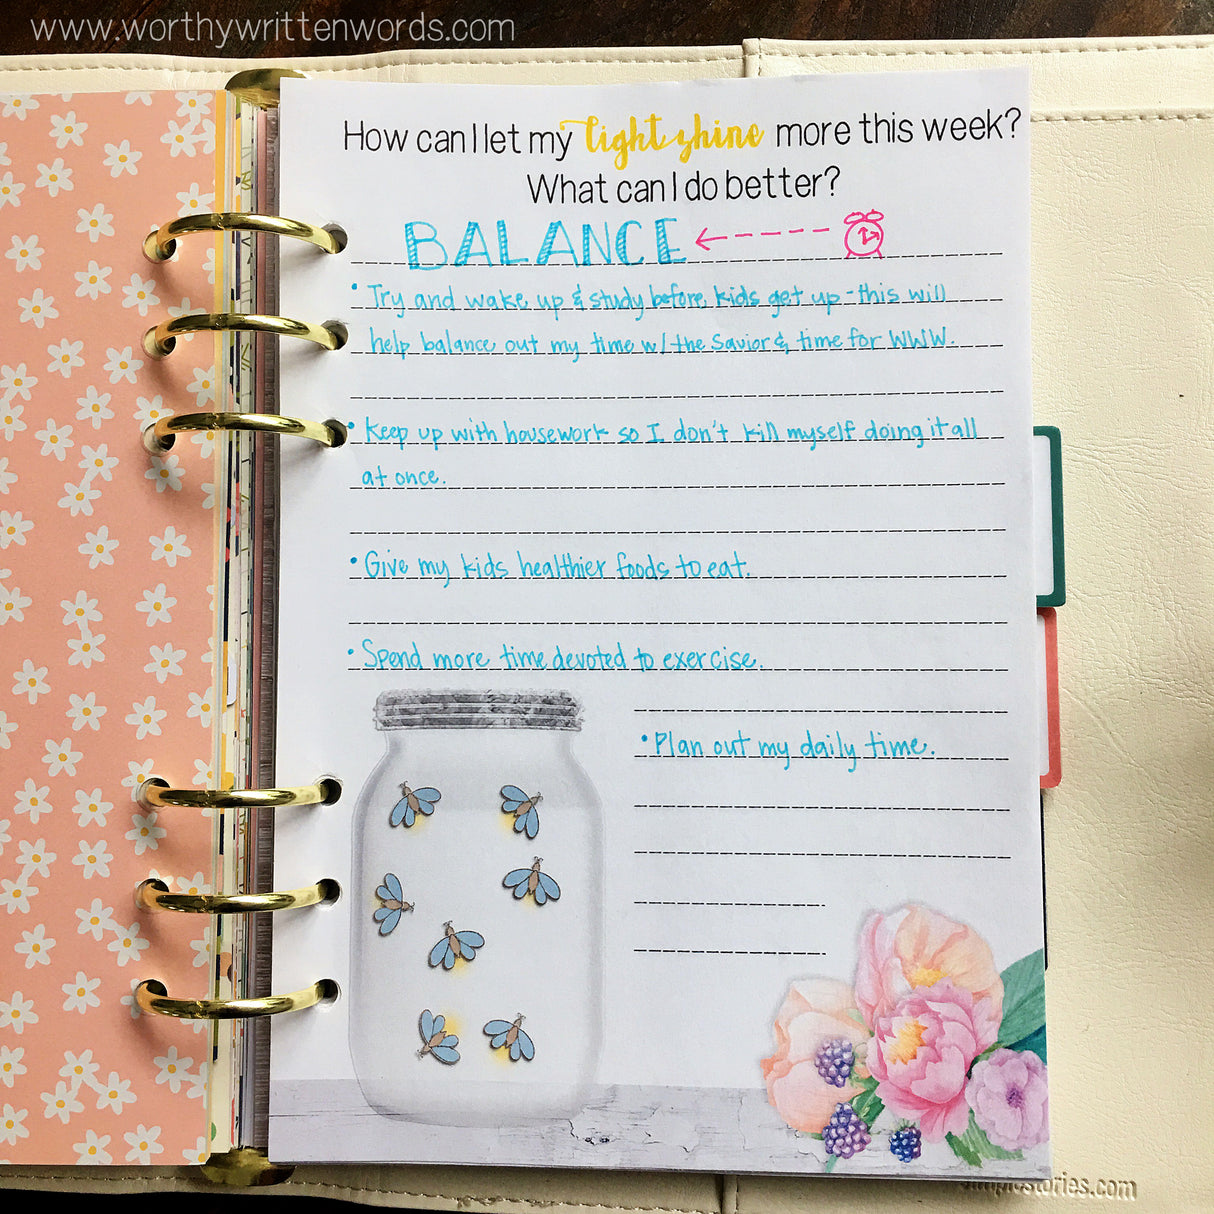 www.worthywrittenwords.com
How can I let my light shine more this week?
What can I do better?
BALANCE
• Try and wake up & study before kids get up - this will
help balance out my time w/ the Savior & time for WWW.
• Keep up with housework so I don't kill myself doing it all
at once.
• Give my kids healthier foods to eat.
• Spend more time devoted to exercise.
• Plan out my daily time.
simplestories.com